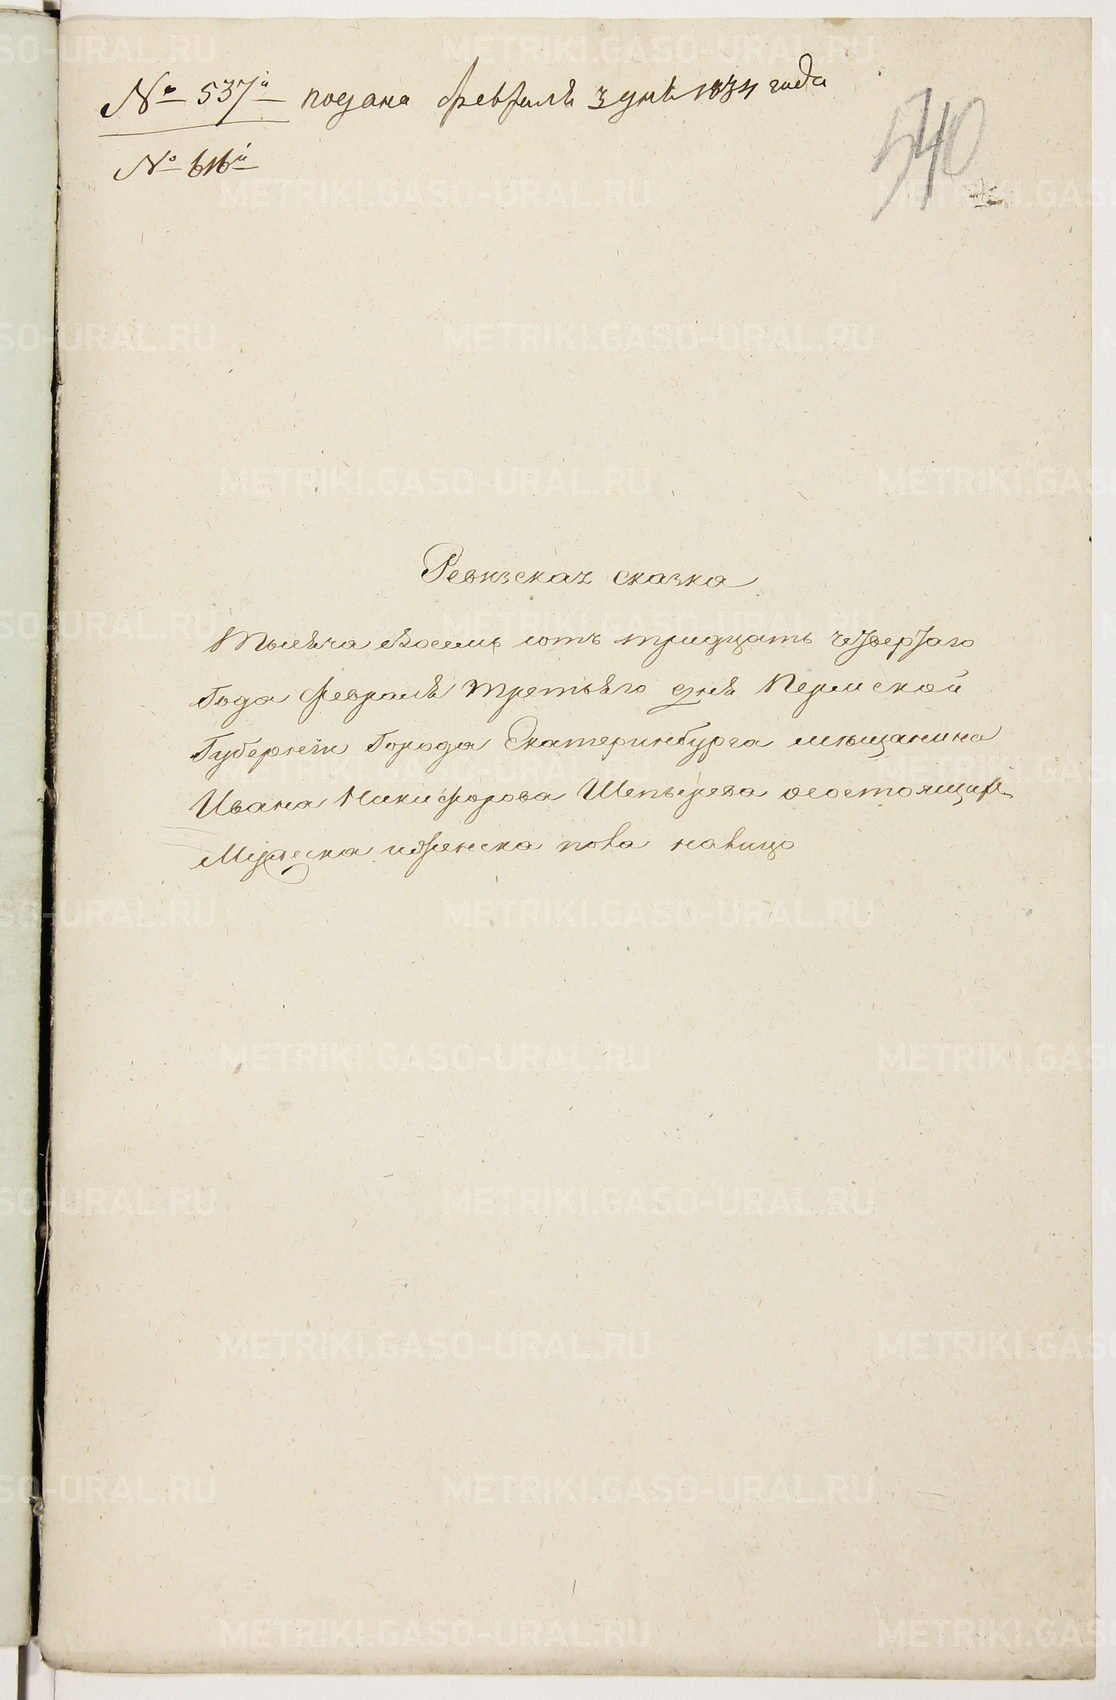 № 537й подана февраля 3 дня 1834 года
№ 616й
540
Ревизская сказка
Тысяча восемь сотъ тридцать четвертаго
Года февраля третьяго дня Пермской
Губернiи Города Екатеринбурга мещанина
Ивана Никифорова осостоящихъ
Мужеска иженска пола налицо
METRIKI.GASO-URAL.RU